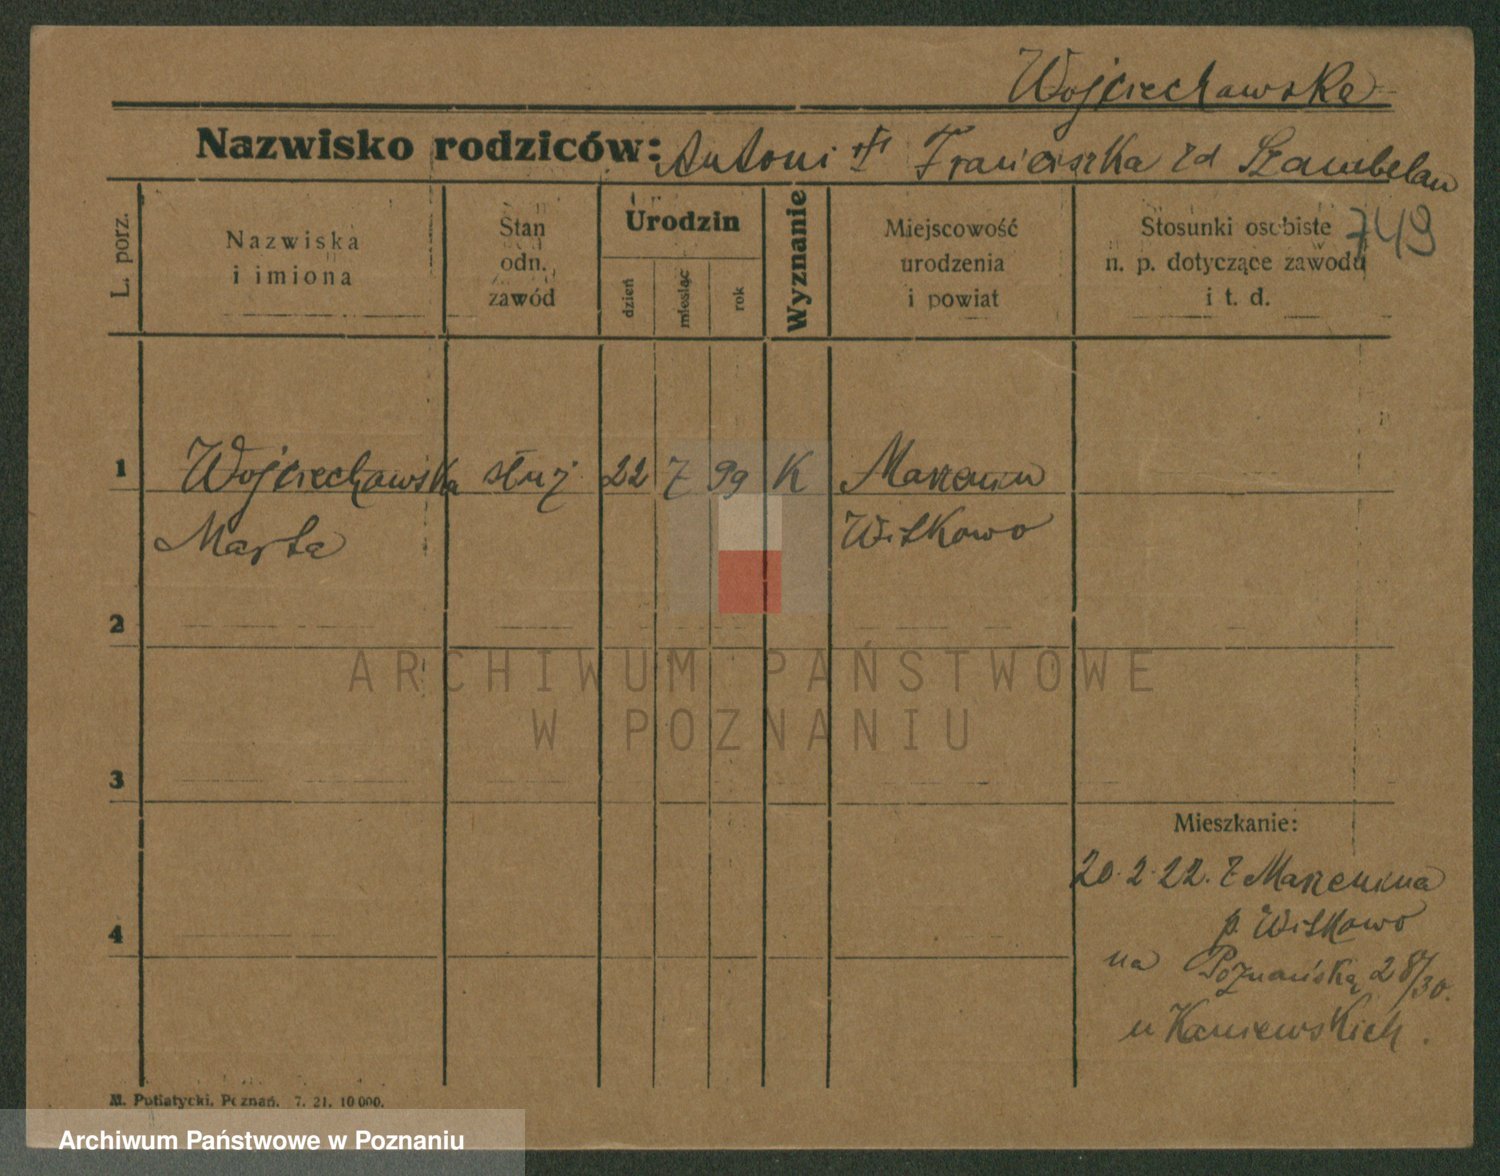 Wojciechowska
Nazwisko rodziców: Antoni Franciszka zd Szambelan
749
L. porz.
Nazwiska
i imiona
Stan
odn.
zawód
Urodzin
dzień
miesiąc
rok
Wyznanie
Miejscowość
urodzenia
i powiat
Stosunki osobiste
n. p. dotyczące zawodu
i t. d.
1 Wojciechowska służ 22 7 99 K Marzenin
Marta Witkowo
2
3
4
Mieszkanie:
20.2.22. z Marzenina
p. Witkowo
na Poznańską 28/30.
u Kaniewskich.
M. Putiatycki, Poznań. 7. 21. 10 000.
ARCHIWUM PAŃSTWOWE
W POZNANIU
Archiwum Państwowe w Poznaniu